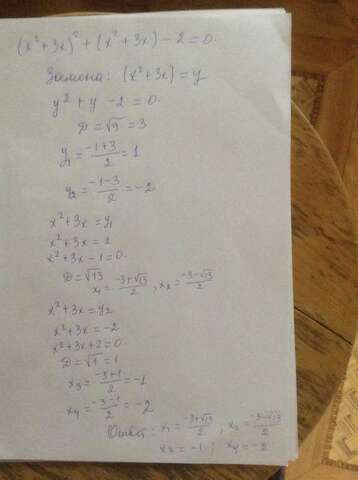 (x²+3x)²+(x²+3x)-2=0.
Замена: (x²+3x)=y
y²+y-2=0.
D=√9=3
y₁=(-1+3)/2=1
y₂=(-1-3)/2=-2
x²+3x=y₁
x²+3x=1
x²+3x-1=0.
D=√13 x₁=(-3+√13)/2, x₂=(-3-√13)/2
x²+3x=y₂
x²+3x=-2
x²+3x+2=0.
D=√1=1
x₃=(-3+1)/2=-1
x₄=(-3-1)/2=-2
Ответ: x₁=(-3+√13)/2, x₂=(-3-√13)/2
x₃=-1; x₄=-2